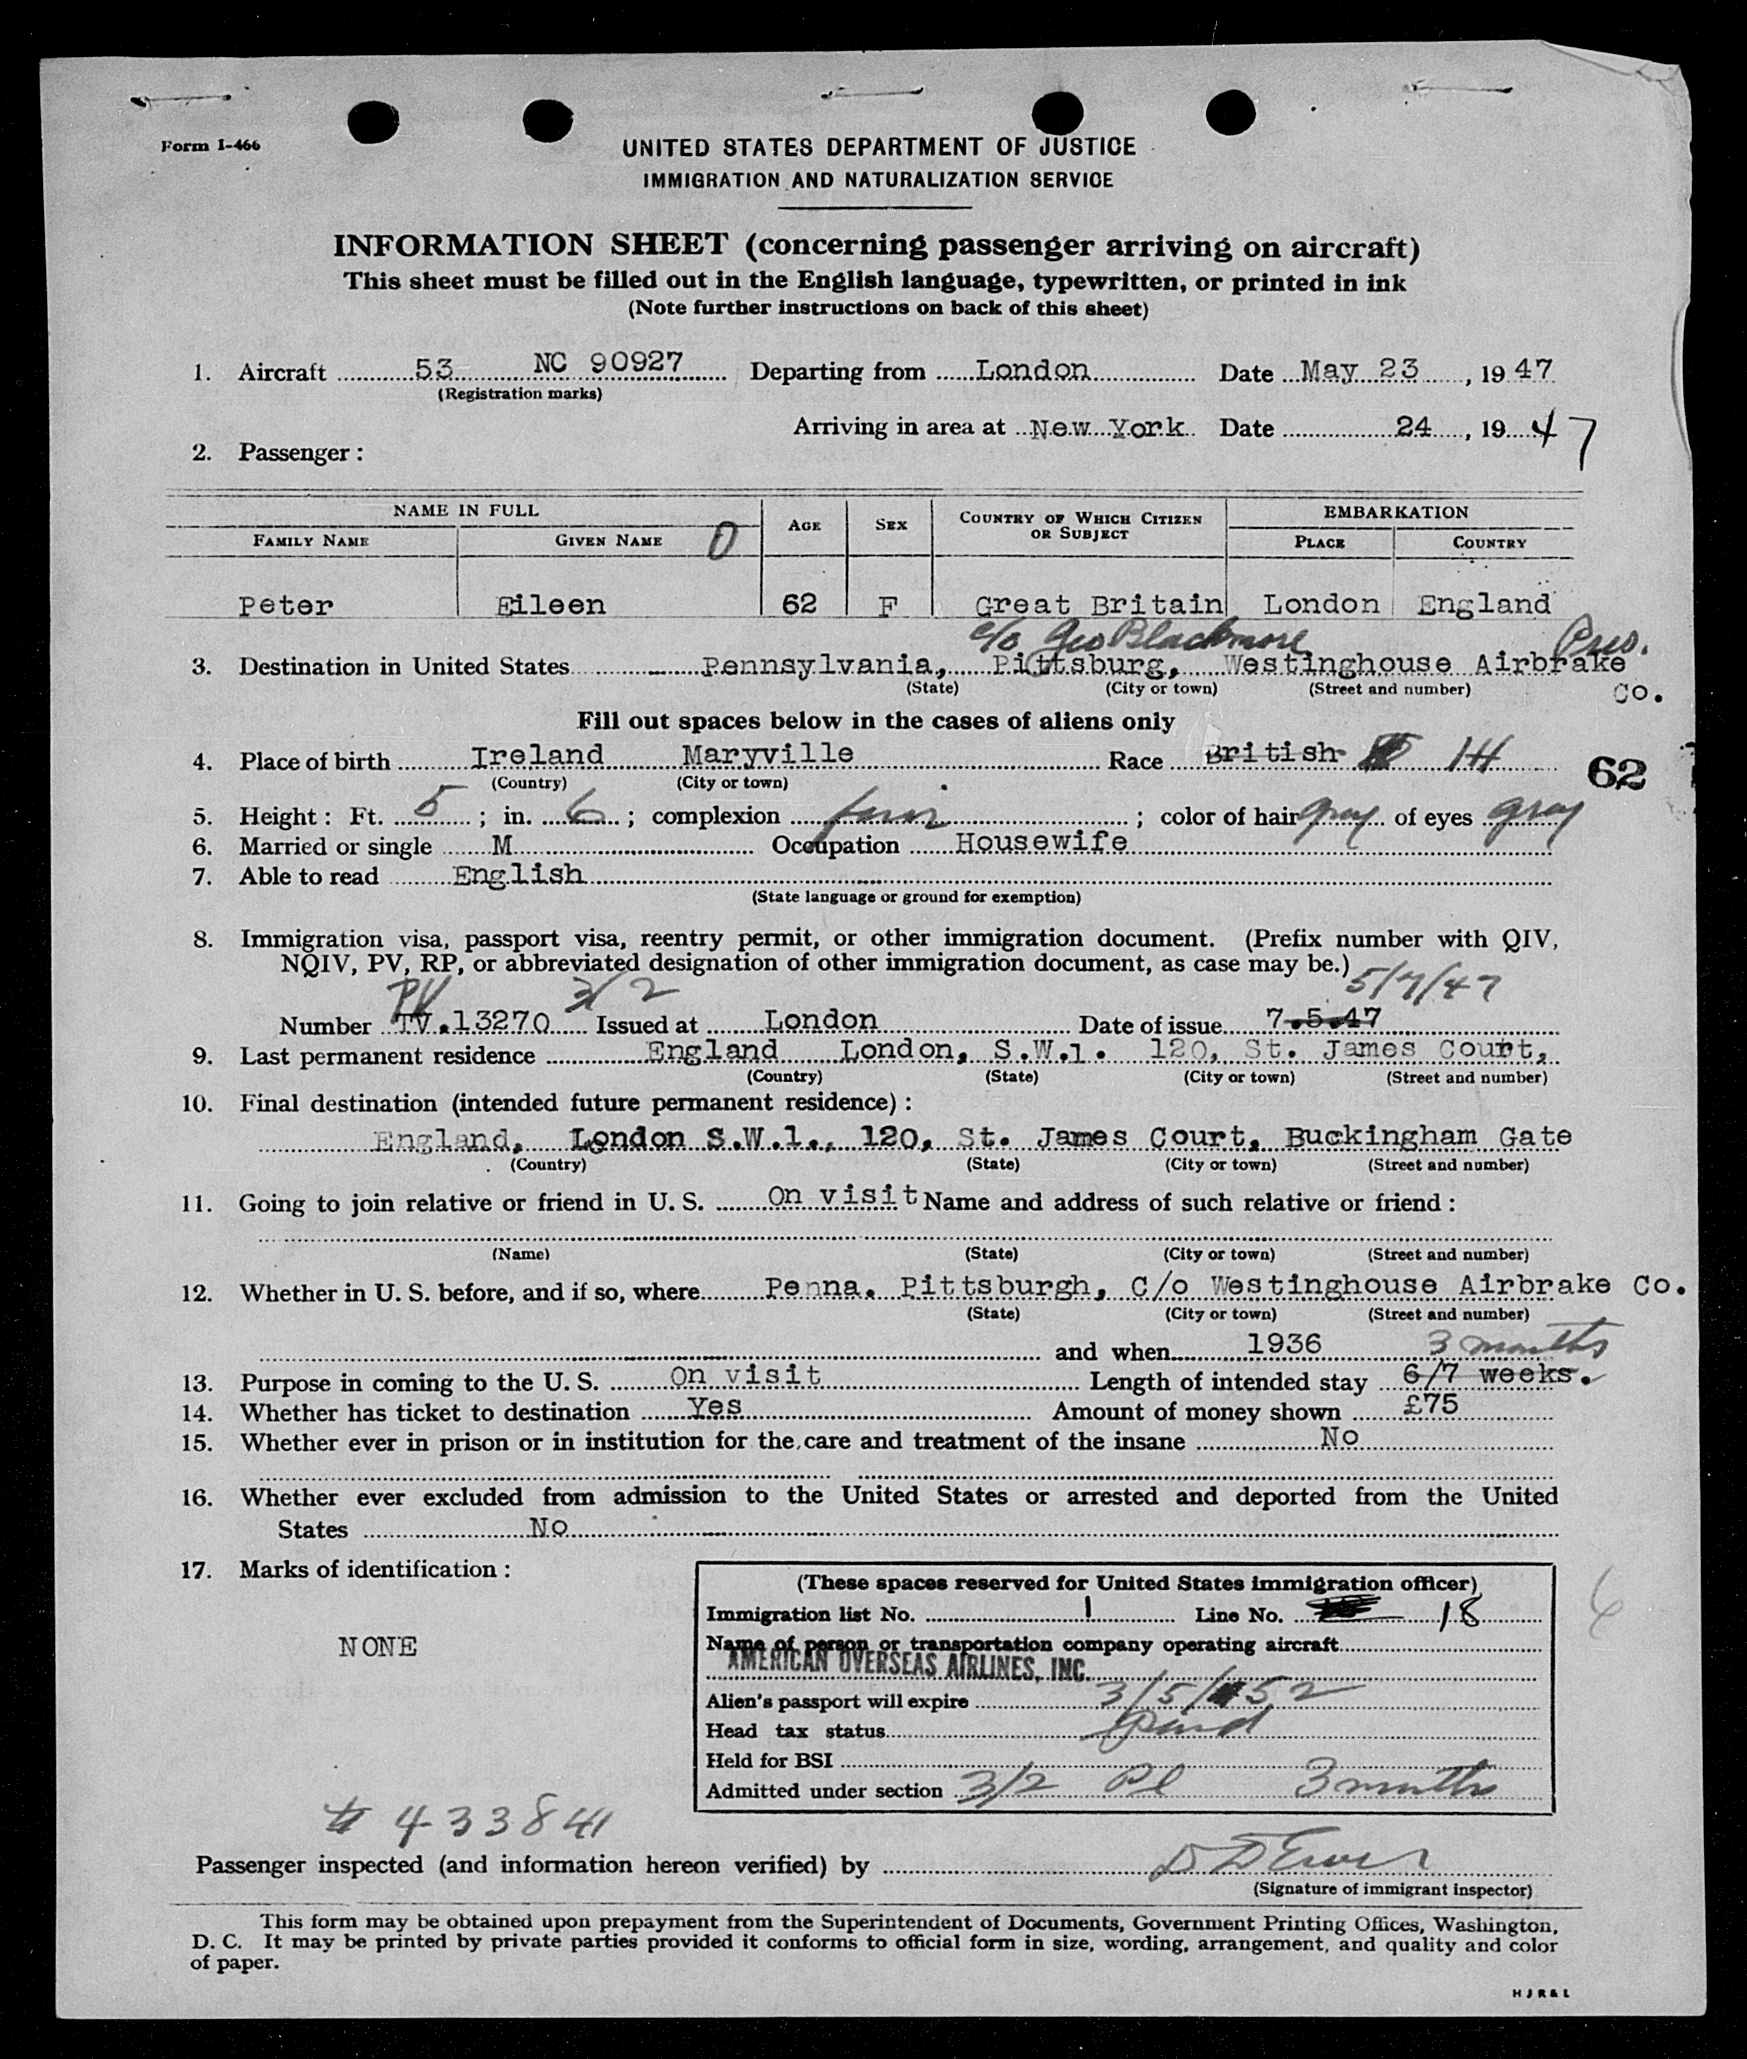 Form I-466
UNITED STATES DEPARTMENT OF JUSTICE
IMMIGRATION AND NATURALIZATION SERVICE
INFORMATION SHEET (concerning passenger arriving on aircraft)
This sheet must be filled out in the English language, typewritten, or printed in ink
(Note further instructions on back of this sheet)
1. Aircraft 53 NC 90927 Departing from London Date May 23, 19 47
(Registration marks)
Arriving in area at New York Date 24, 19 47
2. Passenger:
NAME IN FULL AGE SEX COUNTRY OF WHICH CITIZEN OR SUBJECT EMBARKATION
FAMILY NAME GIVEN NAME 0 PLACE COUNTRY
Peter Eileen 62 F Great Britain London England
c/o Geo Blackmore Pres.
3. Destination in United States Pennsylvania, Pittsburg, Westinghouse Airbrake Co.
(State) (City or town) (Street and number)
Fill out spaces below in the cases of aliens only
4. Place of birth Ireland Maryville Race British IH
(Country) (City or town)
62
5. Height: Ft. 5; in. 6; complexion fair; color of hair gray of eyes gray
6. Married or single M Occupation Housewife
7. Able to read English
(State language or ground for exemption)
8. Immigration visa, passport visa, reentry permit, or other immigration document. (Prefix number with QIV,
NQIV, PV, RP, or abbreviated designation of other immigration document, as case may be.)
PV 3/2 5/7/47
Number TV.13270 Issued at London Date of issue 7.5.47
9. Last permanent residence England London, S.W.1. 120, St. James Court,
(Country) (State) (City or town) (Street and number)
10. Final destination (intended future permanent residence):
England, London S.W.1., 120, St. James Court, Buckingham Gate
(Country) (State) (City or town) (Street and number)
11. Going to join relative or friend in U. S. On visit Name and address of such relative or friend:
(Name) (State) (City or town) (Street and number)
12. Whether in U. S. before, and if so, where Penna. Pittsburgh, C/o Westinghouse Airbrake Co.
(State) (City or town) (Street and number)
and when 1936 3 months
13. Purpose in coming to the U. S. On visit Length of intended stay 6/7 weeks.
14. Whether has ticket to destination Yes Amount of money shown £75
15. Whether ever in prison or in institution for the care and treatment of the insane No
16. Whether ever excluded from admission to the United States or arrested and deported from the United
States No
17. Marks of identification:
NONE
(These spaces reserved for United States immigration officer)
Immigration list No. 1 Line No. 18
Name of person or transportation company operating aircraft
AMERICAN OVERSEAS AIRLINES, INC.
Alien's passport will expire 3/5/52
Head tax status Paid
Held for BSI
Admitted under section 3/2 3 months
6
# 433841
Passenger inspected (and information hereon verified) by
(Signature of immigrant inspector)
This form may be obtained upon prepayment from the Superintendent of Documents, Government Printing Offices, Washington,
D. C. It may be printed by private parties provided it conforms to official form in size, wording, arrangement, and quality and color
of paper.
H J R & L